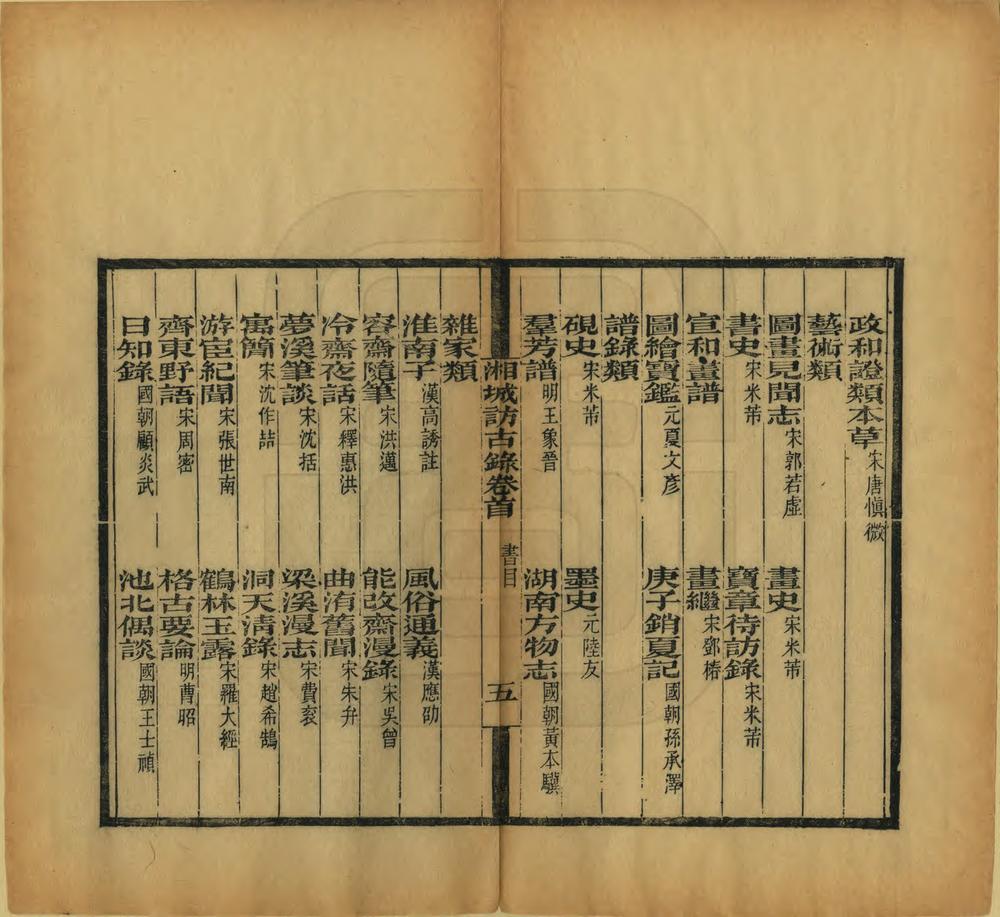 政和證類本草宋唐愼微
藝術類
圖畫見聞志宋郭若虛　畫史宋米芾
書史宋米芾　寶章待訪錄宋米芾
宣和畫譜　畫繼宋鄧椿
圖繪寶鑑元夏文彥　庚子銷夏記國朝孫承澤
譜錄類
硯史宋米芾　墨史元陸友
羣芳譜明王象晉　湖南方物志國朝黃本驥
湘城訪古錄卷首　書目　五
雜家類
淮南子漢高誘註　風俗通義漢應劭
容齋隨筆宋洪邁　能改齋漫錄宋吳曾
冷齋夜話宋釋惠洪　曲洧舊聞宋朱弁
夢溪筆談宋沈括　梁溪漫志宋費袞
寓簡宋沈作喆　洞天淸錄宋趙希鵠
游宦紀聞宋張世南　鶴林玉露宋羅大經
齊東野語宋周密　格古要論明曹昭
日知錄國朝顧炎武　池北偶談國朝王士禎